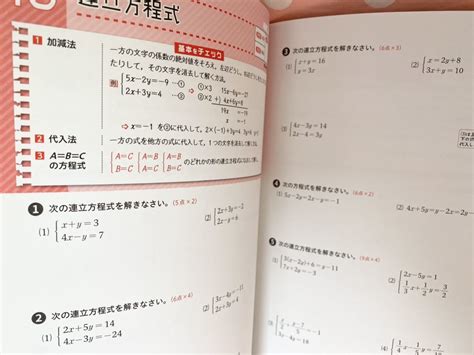 連立方程式
1 加減法
基本をチェック
一方の文字の係数の絶対値をそろえ、左辺どうし、右辺
たりして、その文字を消去して解く方法。
例 {5x-2y=-9 …① ①×3 15x-6y=-27
{2x+3y=4 …② ②×2 +) 4x+6y=8
19x =-19
x =-1
⇒ x=-1 を②に代入して、2×(-1)+3y=4 3y=6 y=2
2 代入法
一方の式を他方の式に代入して、1つの文字を消去して解く
3 A=B=C
の方程式
{A=C {A=B {A=B
{B=C {B=C {A=C
のどれかの形の連立方程式に
1 次の連立方程式を解きなさい。(5点×2)
(1) {x+y=3
{4x-y=7
(2) {2x+3y=-2
{2x-y=6
2 次の連立方程式を解きなさい。(6点×4)
(1) {2x+5y=14
{4x-3y=-24
(2) {3x-4y=-11
{2x-
3 次の連立方程式を解きなさい。(6点×3)
(1) {x+y=16
{y=3x
(2) {x=2y+8
{3x+y=10
(3) {4x-3y=14
{2x-4=3y
4 次の連立方程式を解きなさい。(6点×2)
(1) 5x-2y=2x-y=-1
(2) 4x+5y=2y-2x=
5 次の連立方程式を解きなさい。(9点×4)
(1) {3(x-2y)+y=-11
{7x+2y=-3
(2) {2x-5y=1
{1/3x+1/2y=3/2